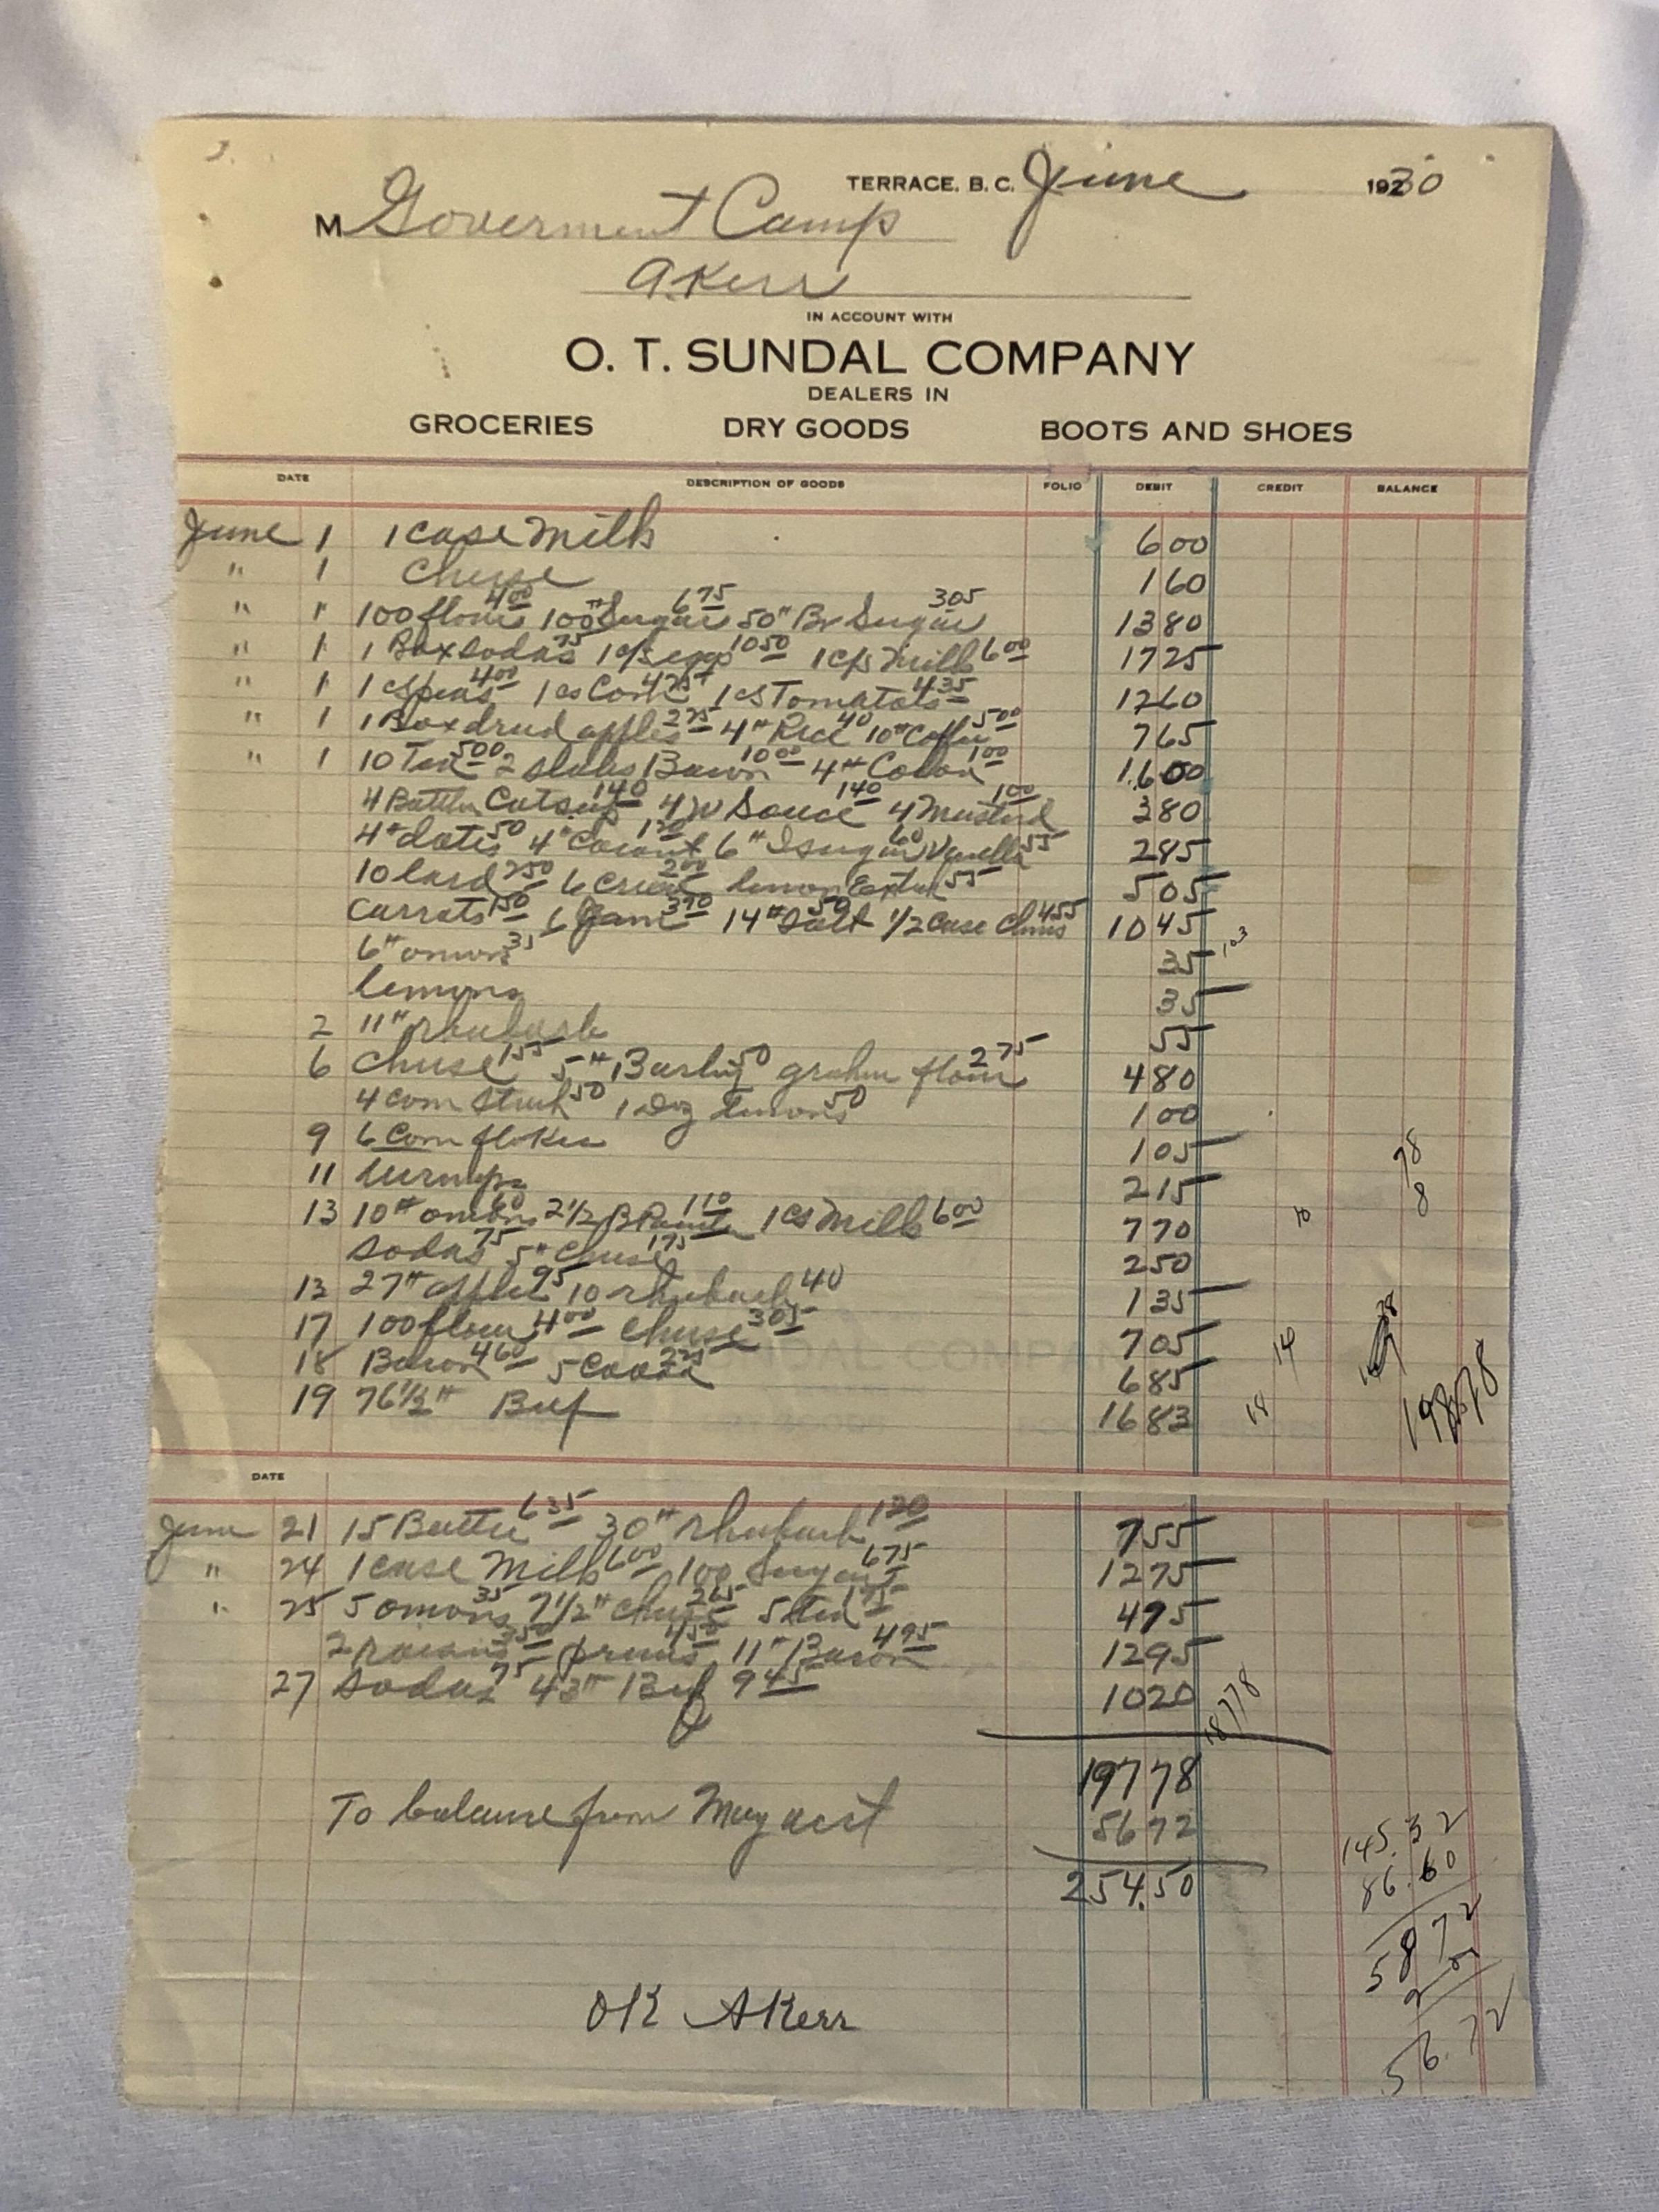 TERRACE, B. C. June 192 30
M Goverment Camp
A. Kerr
IN ACCOUNT WITH
O. T. SUNDAL COMPANY
DEALERS IN
GROCERIES DRY GOODS BOOTS AND SHOES
DATE DESCRIPTION OF GOODS FOLIO DEBIT CREDIT BALANCE
June 1 1 case Milk 6 00
" 1 Cheese 1 60
" 1 100 flour 4 00 100# Sugar 6 75 50# Br Sugar 3 05 13 80
" 1 1 Box sodas 75 1 c/s eggs 10 50 1 c/s Milk 6 00 17 25
" 1 1 cs peas 4 00 1 cs Corn 4 25 1 cs Tomatots 4 35 12 60
" 1 1 Box dried apples 2 25 4# Rice 40 10# Coffee 5 00 7 65
" 1 10 Tea 5 00 2 slabs Bacon 10 00 4# Cocoa 1 00 16 00
4 Bottles Catsup 1 40 4 W Sauce 1 40 4 Mustard 1 00 3 80
4# dates 50 4# Cocoant 1 20 6# I sugar 60 Vanilla 55 2 85
10 lard 2 50 6 2 00 lemon Extra 55 5 05
Carrots 1 50 6 Jam 3 90 14# Salt 50 1/2 case 4 55 10 45
6# onions 35 35
lemons 35
2 11# rhubarb 55
6 Cheese 1 55 5# Barley 50 grahm flour 2 75 4 80
4 corn starch 50 1 Doz Lemons 50 1 00
9 6 Corn flakes 1 05
11 turnips 2 15
13 10# onions 60 2 1/2 110 1 cs Milk 6 00 7 70
sodas 75 5# Cheese 1 75 2 50
13 27# apples 95 10 rhubarb 40 1 35
17 100 flour 4 00 Cheese 3 05 7 05
18 Bacon 4 60 5 Cocoa 2 25 6 85
19 76 1/2# Beef 16 83
DATE
June 21 15 Butter 6 35 30# rhubarb 1 20 7 55
" 24 1 case Milk 6 00 100 Sugar 6 75 12 75
" 25 5 onions 35 7 1/2# cheese 2 65 5 Tea 1 75 4 75
2 raisins 3 50 prunes 4 50 11# Bacon 4 95 12 95
27 sodas 75 43# Beef 9 45 10 20
197 78
To balance from May acct 56 72
254.50
145.32
86.60
58 72
2 00
56.72
OK AKerr